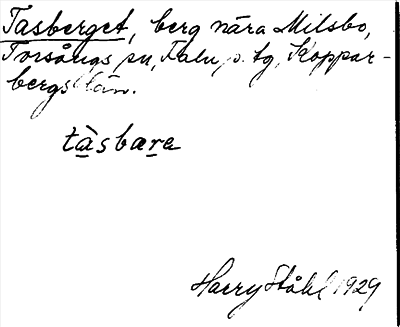 Tasberget, berg nära Milsbo,
Torsångs sn, Falu s. tg, Koppar-
bergs län.
tàsbæra
Harry Ståhl 1929